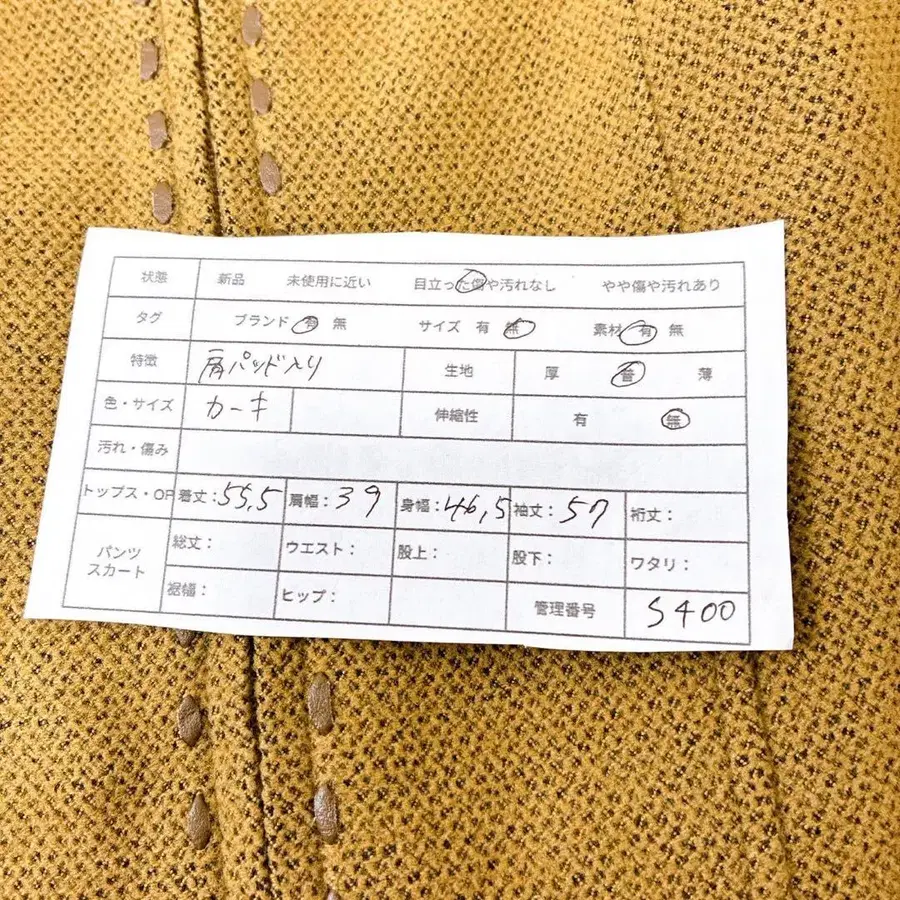 状態 新品 未使用に近い 目立った傷や汚れなし やや傷や汚れあり
タグ ブランド 有 無 サイズ 有 無 素材 有 無
特徴 肩パッド入り 生地 厚 普 薄
色・サイズ カーキ 伸縮性 有 無
汚れ・傷み
トップス・OP 着丈：55,5 肩幅：39 身幅：46,5 袖丈：57 裄丈：
パンツ スカート 総丈： ウエスト： 股上： 股下： ワタリ：
裾幅： ヒップ： 管理番号 S400